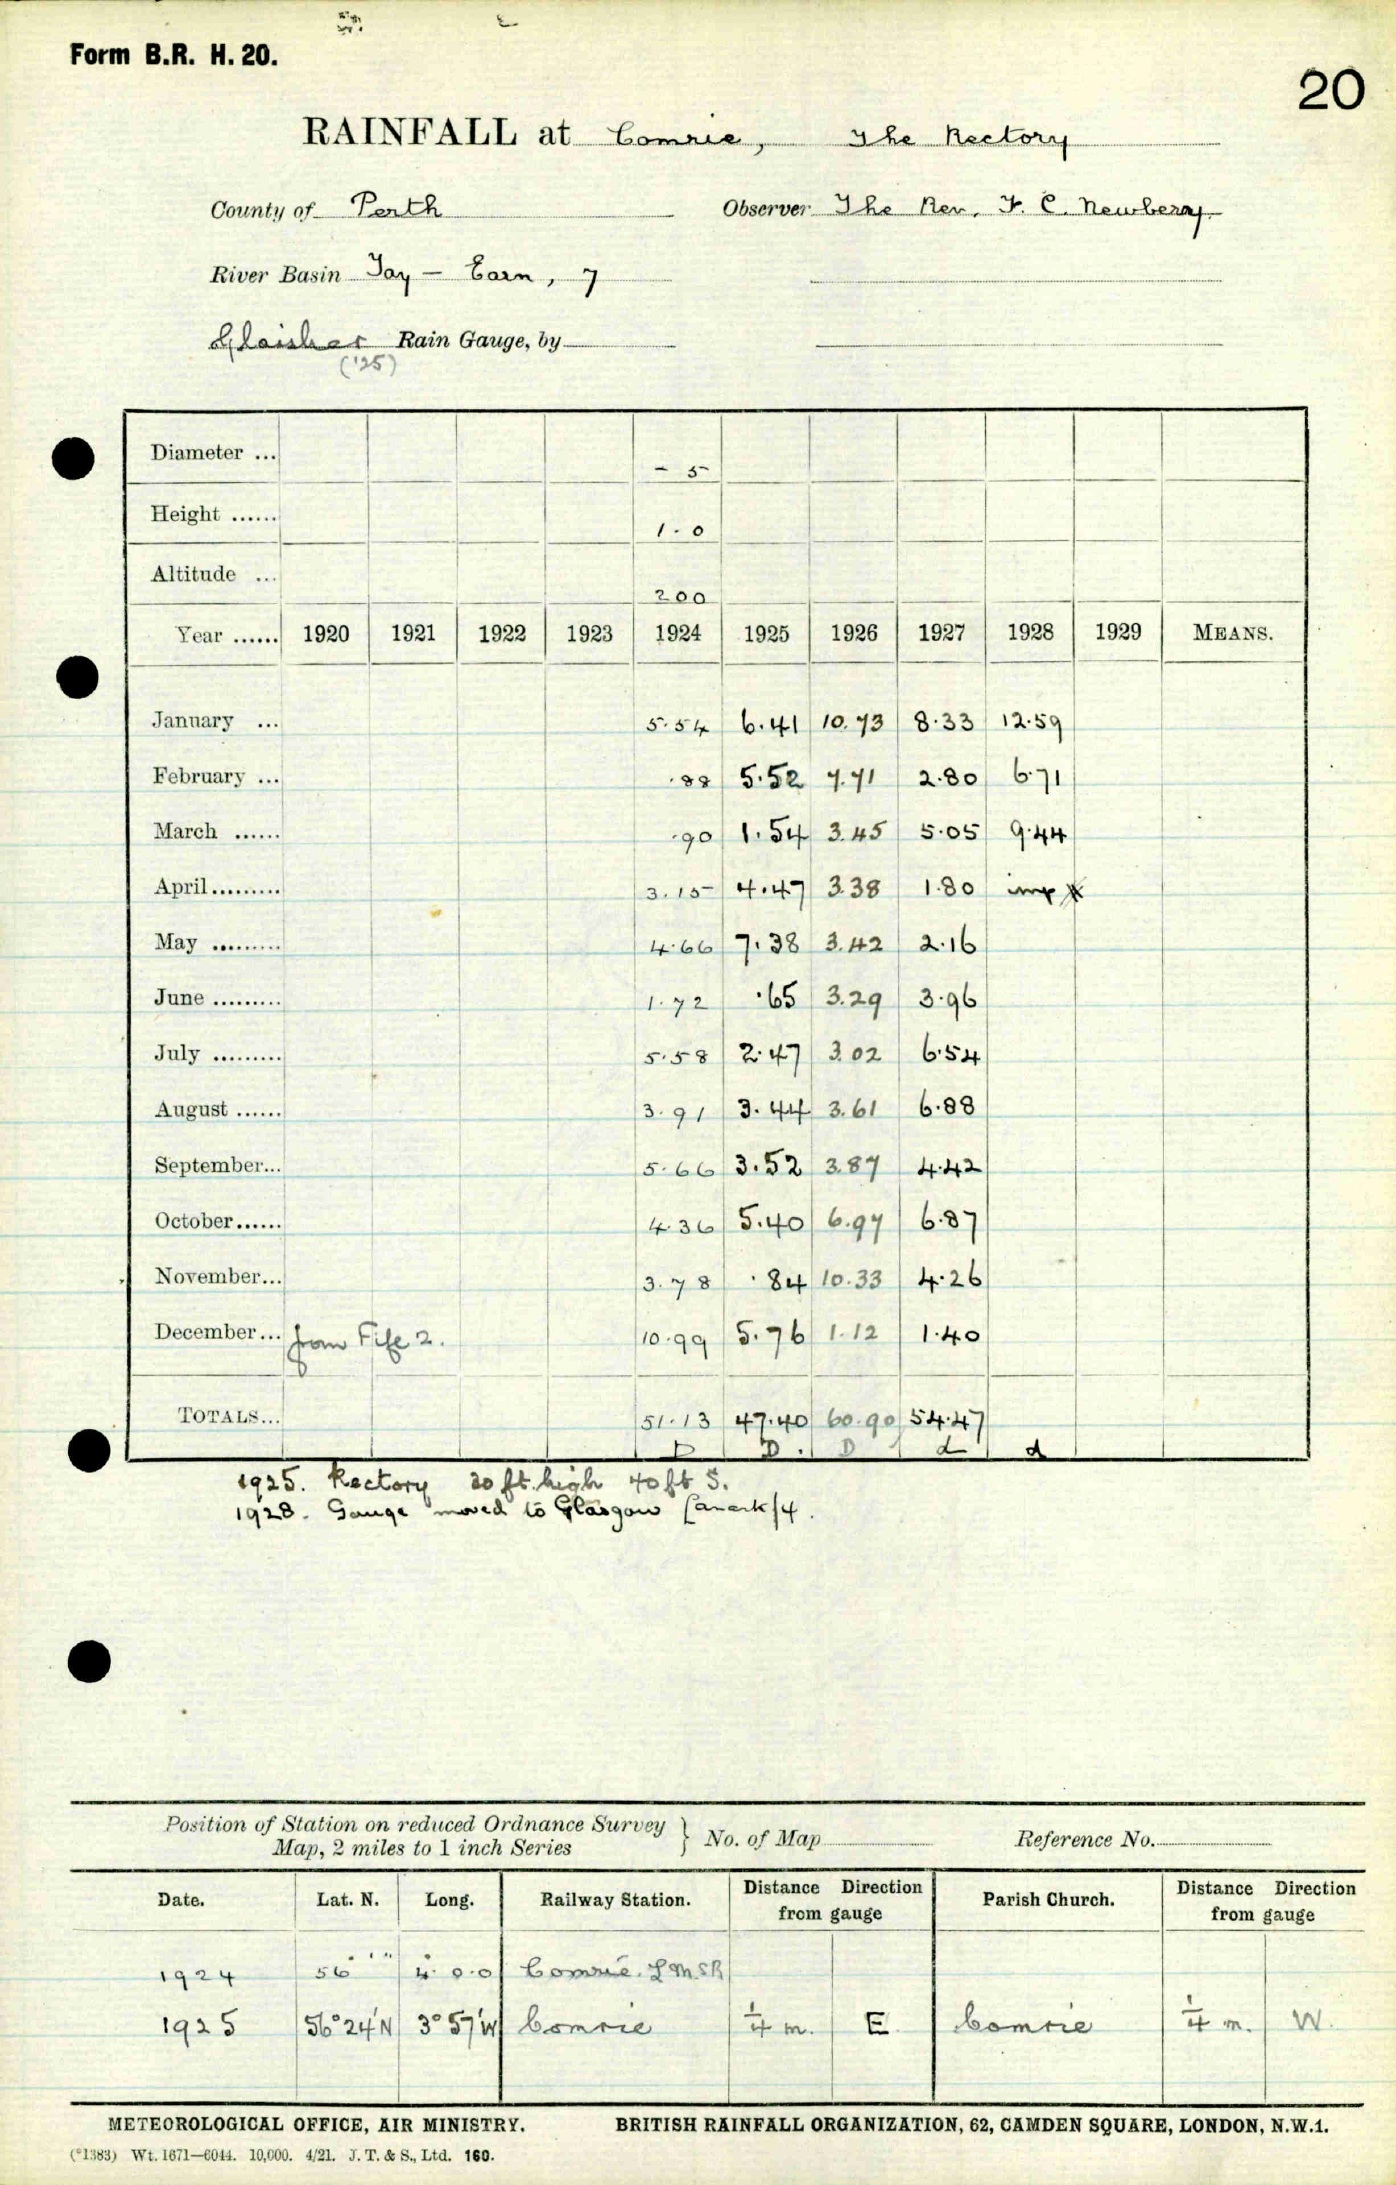 Form B.R. H. 20.
20
RAINFALL at Comrie, The Rectory
County of Perth Observer The Rev. F. C. Newberry
River Basin Tay – Earn, 7
Glaisher Rain Gauge, by
('25)
Diameter ... - 5
Height ...... 1 - 0
Altitude ... 200
Year ...... 1920 1921 1922 1923 1924 1925 1926 1927 1928 1929 MEANS.
January ... 5.54 6.41 10.73 8.33 12.59
February ... .88 5.52 7.71 2.80 6.71
March ...... .90 1.54 3.45 5.05 9.44
April......... 3.15 4.47 3.38 1.80 imp
May ......... 4.66 7.38 3.42 2.16
June ......... 1.72 .65 3.29 3.96
July ......... 5.58 2.47 3.02 6.54
August ...... 3.91 3.44 3.61 6.88
September... 5.66 3.52 3.87 4.42
October...... 4.36 5.40 6.97 6.87
November... 3.78 .84 10.33 4.26
December... from Fife 2. 10.99 5.76 1.12 1.40
TOTALS... 51.13 47.40 60.90 54.47
D D. D d d
1925. Rectory 20 ft. high 40 ft S.
1928. Gauge moved to Glasgow Lanark/4.
Position of Station on reduced Ordnance Survey
Map, 2 miles to 1 inch Series } No. of Map Reference No.
Date. Lat. N. Long. Railway Station. Distance Direction from gauge Parish Church. Distance Direction from gauge
1924 56° ' " 4° 0 . 0 Comrie. L M S R
1925 56° 24' N 3° 57' W Comrie 1/4 m. E Comrie 1/4 m. W.
METEOROLOGICAL OFFICE, AIR MINISTRY. BRITISH RAINFALL ORGANIZATION, 62, CAMDEN SQUARE, LONDON, N.W.1.
(*1383) Wt. 1671—6044. 10,000. 4/21. J. T. & S., Ltd. 160.